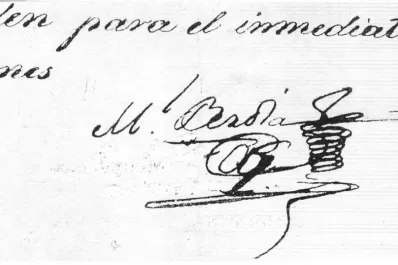 den para el inmediat
nes
M.l Berdia